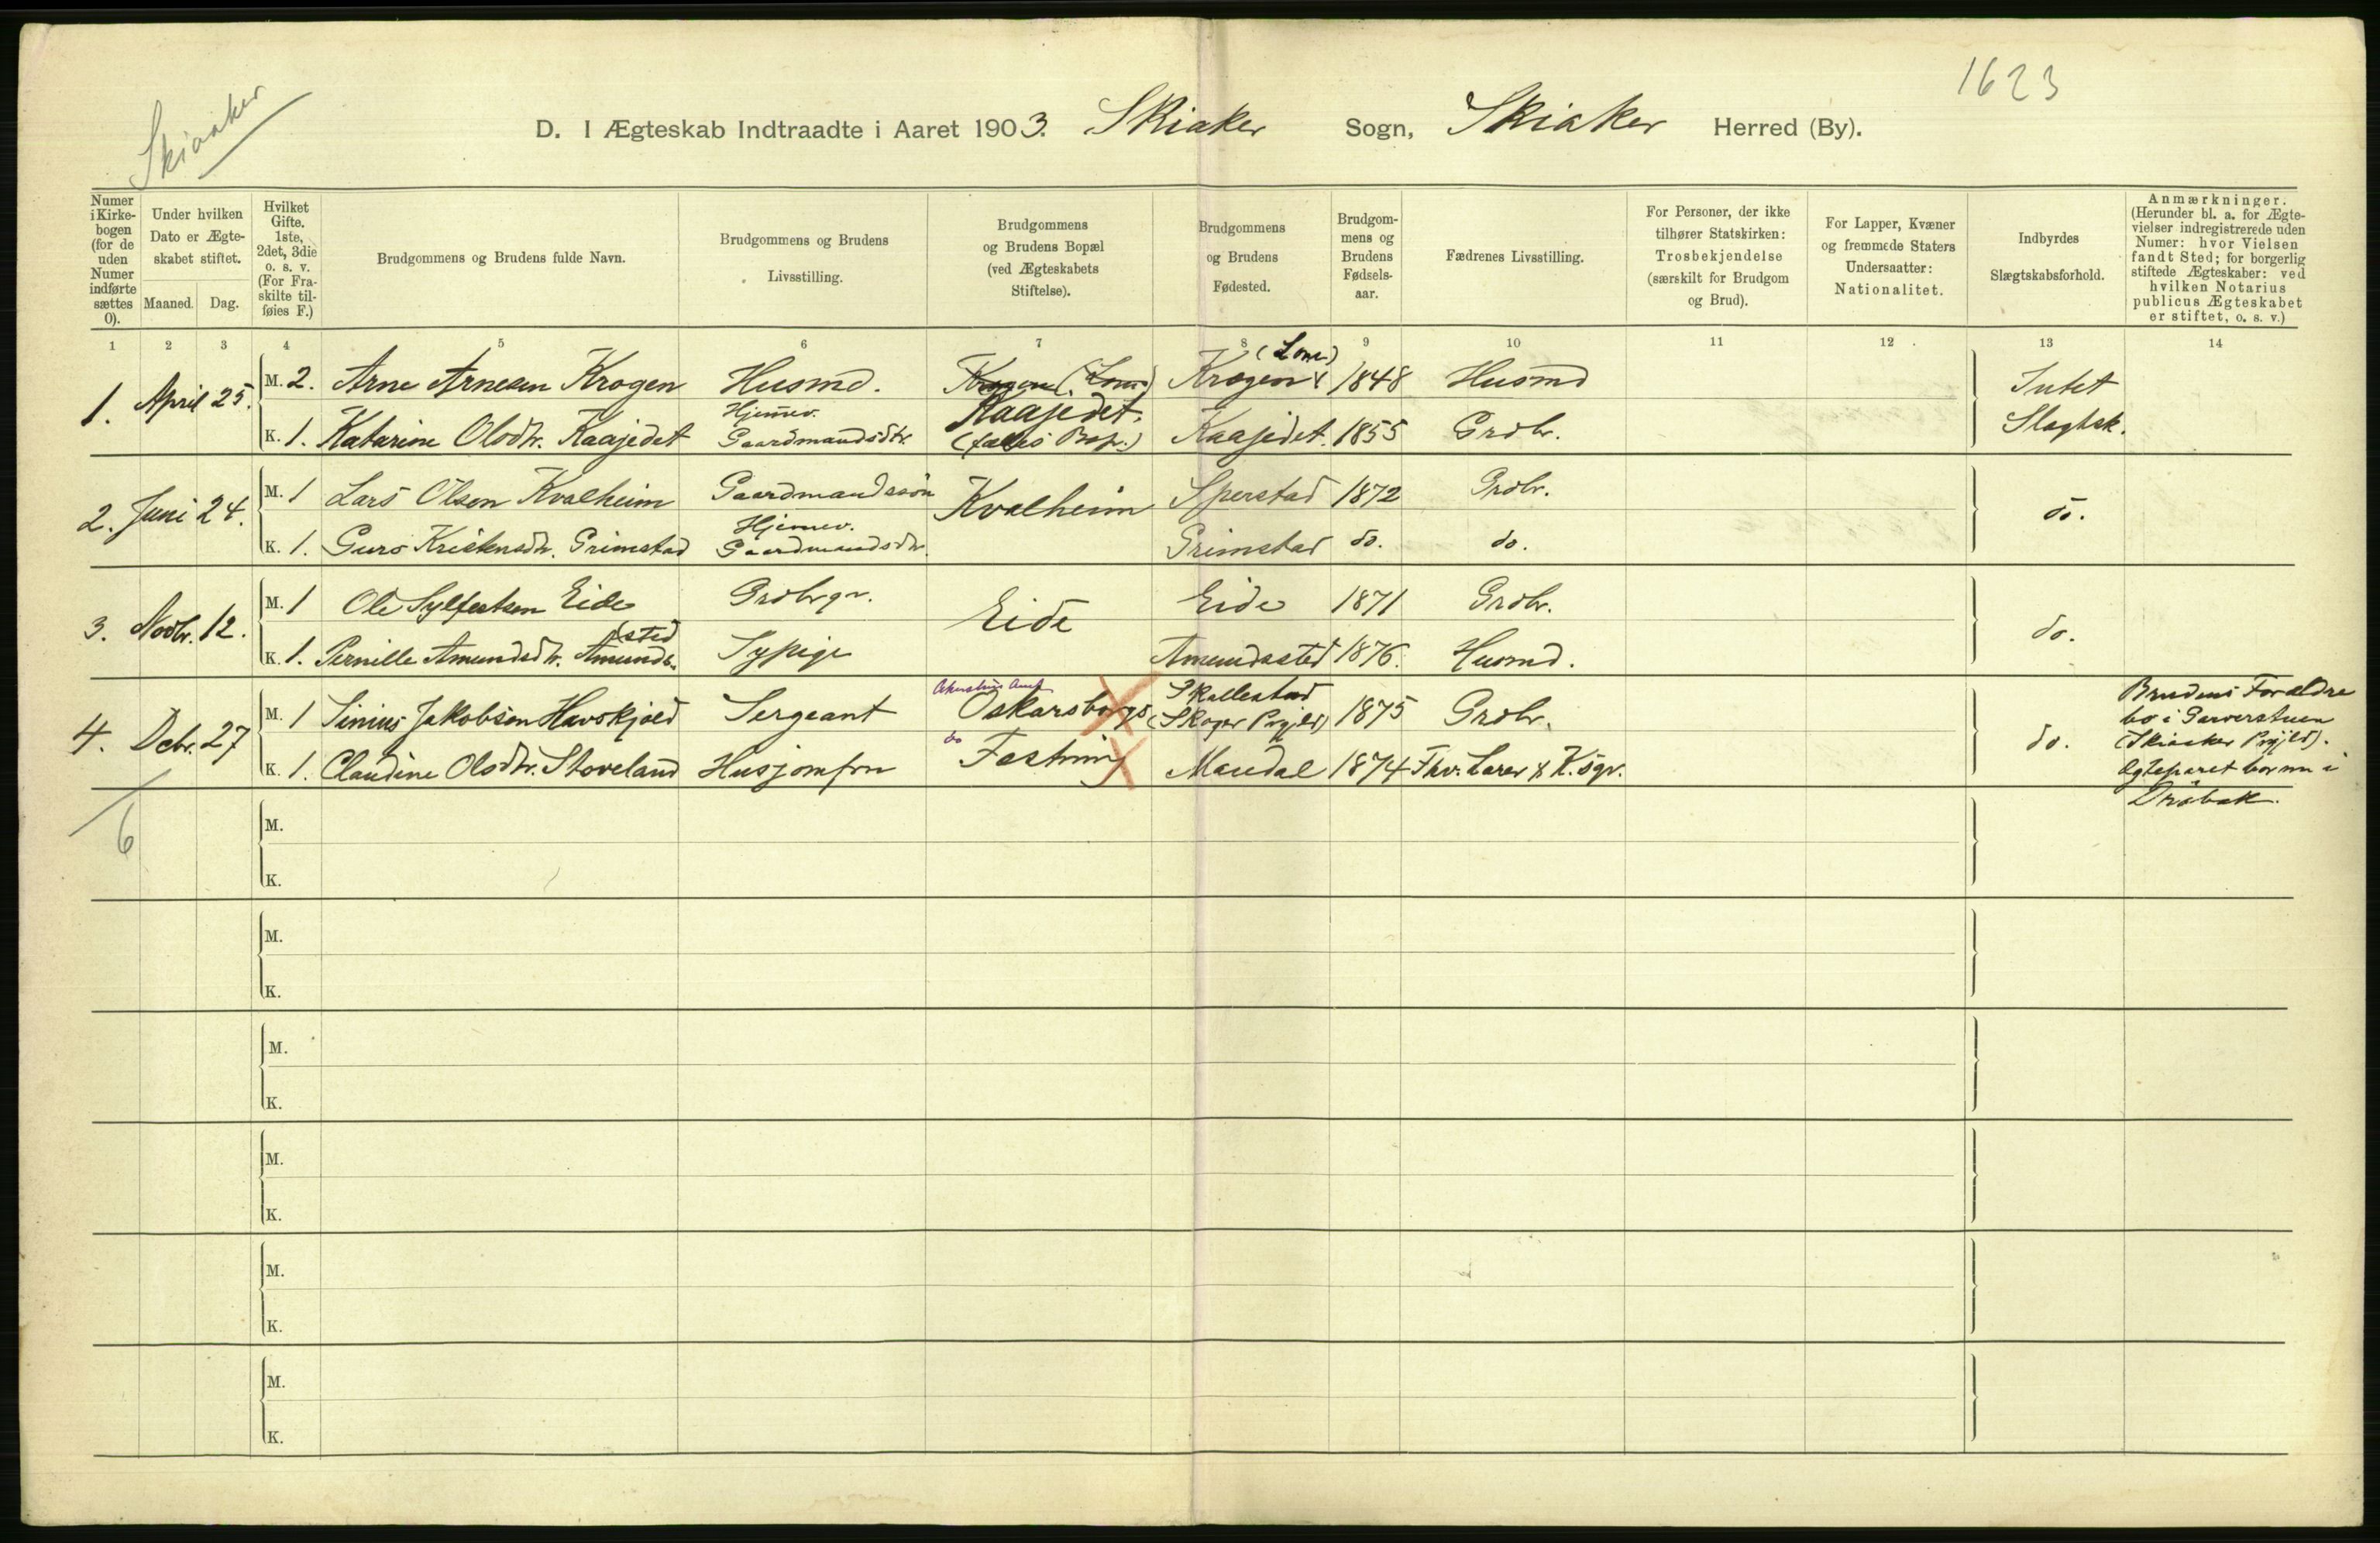 1623
Skiaaker
D. I Ægteskab Indtraadte i Aaret 1903. Skiaker Sogn, Skiaker Herred (By).
Numer i Kirke-bogen (for de uden Numer indførte sættes 0).
Under hvilken Dato er Ægte-skabet stiftet.
Maaned. Dag.
Hvilket Gifte. 1ste, 2det, 3die o. s. v. (For Fra-skilte til-føies F.)
Brudgommens og Brudens fulde Navn.
Brudgommens og Brudens Livsstilling.
Brudgommens og Brudens Bopæl (ved Ægteskabets Stiftelse).
Brudgommens og Brudens Fødested.
Brudgom-mens og Brudens Fødsels-aar.
Fædrenes Livsstilling.
For Personer, der ikke tilhører Statskirken: Trosbekjendelse (særskilt for Brudgom og Brud).
For Lapper, Kvæner og fremmede Staters Undersaatter: Nationalitet.
Indbyrdes Slægtskabsforhold.
Anmærkninger. (Herunder bl. a. for Ægte-vielser indregistrerede uden Numer: hvor Vielsen fandt Sted; for borgerlig stiftede Ægteskaber: ved hvilken Notarius publicus Ægteskabet er stiftet, o. s. v.)
1 2 3 4 5 6 7 8 9 10 11 12 13 14
1. April 25. M. 2. Arne Arnesen Krogen Husmd. Krogen (Lom) Krogen (Lom) 1848 Husmd Intet Slagtsk.
K. 1. Katarine Olsdtr. Kaajedet Hjemmev. Gaardmandsdtr. Kaajedet. (fælles Bop.) Kaajedet. 1855 Grdbr.
2. Juni 24. M. 1 Lars Olsen Kvalheim Gaardmandssøn Kvalheim Sperstad 1872 Grdbr. do.
K. 1. Guro Kristensdtr. Grimstad Hjemmev. Gaardmandsdtr. Grimstad do. do.
3. Novbr. 12. M. 1 Ole Sylfestsen Eide Grdbrgr. Eide Eide 1871 Grdbr. do.
K. 1. Pernille Amundsdtr. Amunds-(sted Sypige Amundssted 1876. Husmd.
4. Debr. 27 M. 1 Sinius Jakobsen Havskjold Sergeant Akershus Amt Oskarsborgs Skallestad (Skoger Prgjld) 1875 Grdbr. do. Brudens Forældre
K. 1. Claudine Olsdtr. Stoveland Husjomfru do Festning Mandal 1874 Fhv. Lærer & K.sgr.
bo i Garverstuen
(Skiaker Prgjld).
Ægteparet bor nu i
Drøbak.
6
M.
K.
M.
K.
M.
K.
M.
K.
M.
K.
M.
K.